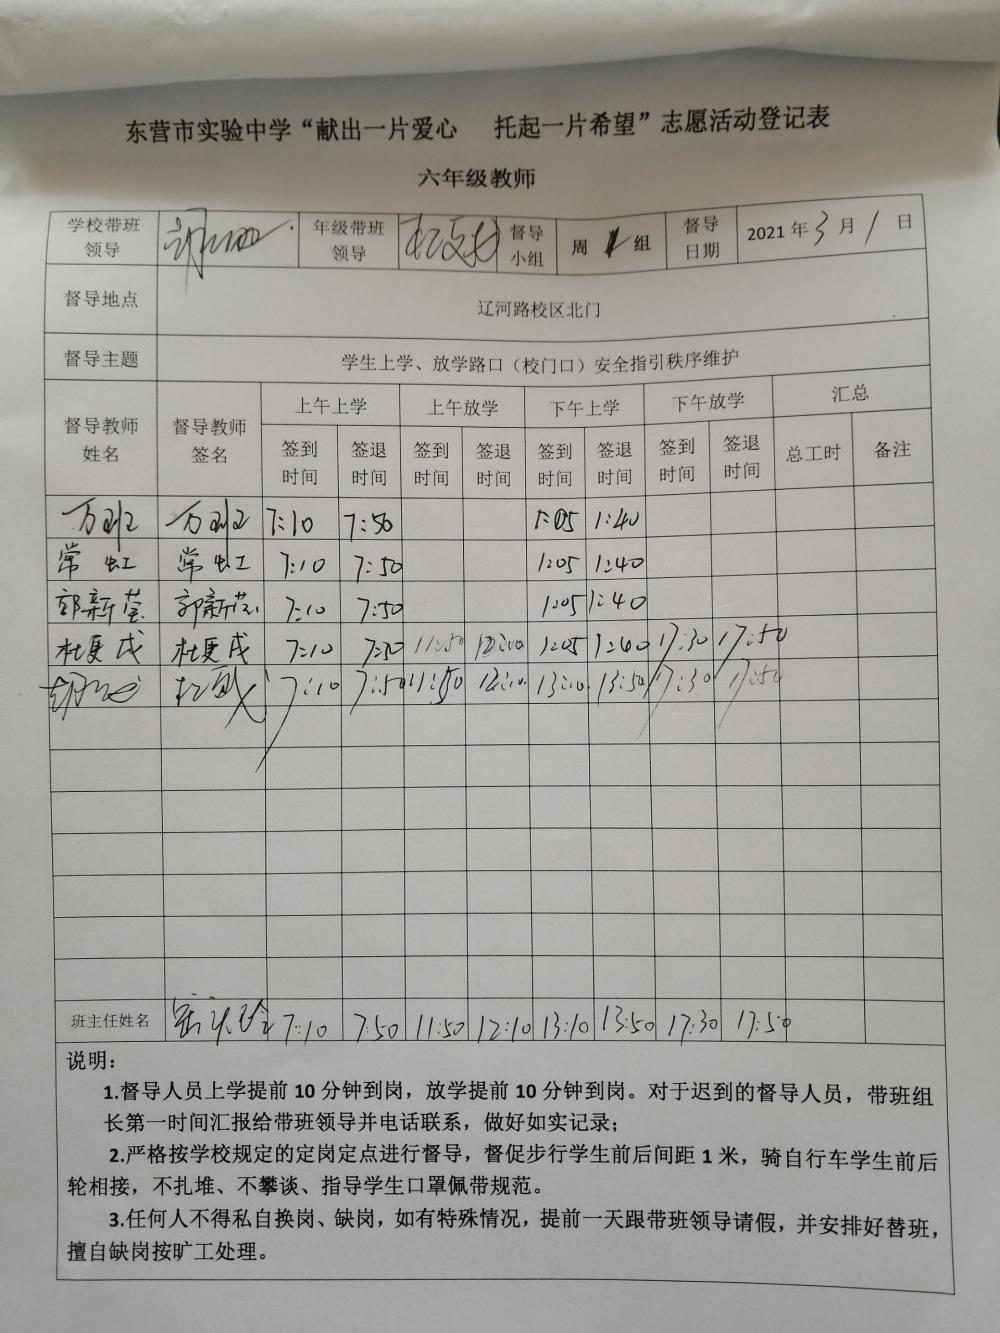 东营市实验中学“献出一片爱心 托起一片希望”志愿活动登记表
六年级教师
学校带班领导 年级带班领导 督导小组 周 1 组 督导日期 2021年3月1日
督导地点 辽河路校区北门
督导主题 学生上学、放学路口（校门口）安全指引秩序维护
督导教师姓名 督导教师签名 上午上学 上午放学 下午上学 下午放学 汇总
签到时间 签退时间 签到时间 签退时间 签到时间 签退时间 签到时间 签退时间 总工时 备注
万班 万班 7:10 7:50 1:05 1:40
常虹 常虹 7:10 7:50 1:05 1:40
郭新莹 郭新莹 7:10 7:50 1:05 1:40
杜夏成 杜夏成 7:10 7:50 11:50 12:00 1:05 1:40 17:30 17:50
7:10 7:50 11:50 12:10 13:10 13:50 17:30 17:50
班主任姓名 7:10 7:50 11:50 12:10 13:10 13:50 17:30 17:50
说明：
1.督导人员上学提前10分钟到岗，放学提前10分钟到岗。对于迟到的督导人员，带班组
长第一时间汇报给带班领导并电话联系，做好如实记录；
2.严格按学校规定的定岗定点进行督导，督促步行学生前后间距1米，骑自行车学生前后
轮相接，不扎堆、不攀谈、指导学生口罩佩带规范。
3.任何人不得私自换岗、缺岗，如有特殊情况，提前一天跟带班领导请假，并安排好替班，
擅自缺岗按旷工处理。